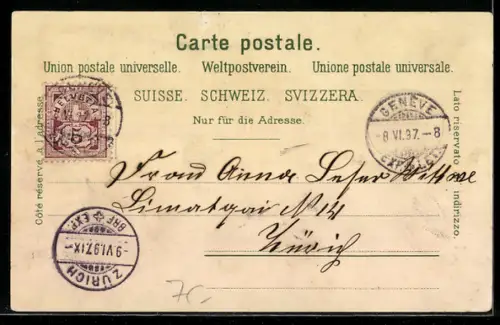 Carte postale.
Union postale universelle. Weltpostverein. Unione postale universale.
SUISSE. SCHWEIZ. SVIZZERA.
Nur für die Adresse.
Côté réservé à l'adresse.
Lato riservato all'indirizzo.
HELVETIA
5
GENÈVE
-8 VI.97.-8
EXP. LETT.
Frau Anna Leser Wittwe
Limatqai No 14
Zürich
ZÜRICH
-9.VI.97.IX-
BRF. EXP.
7.-